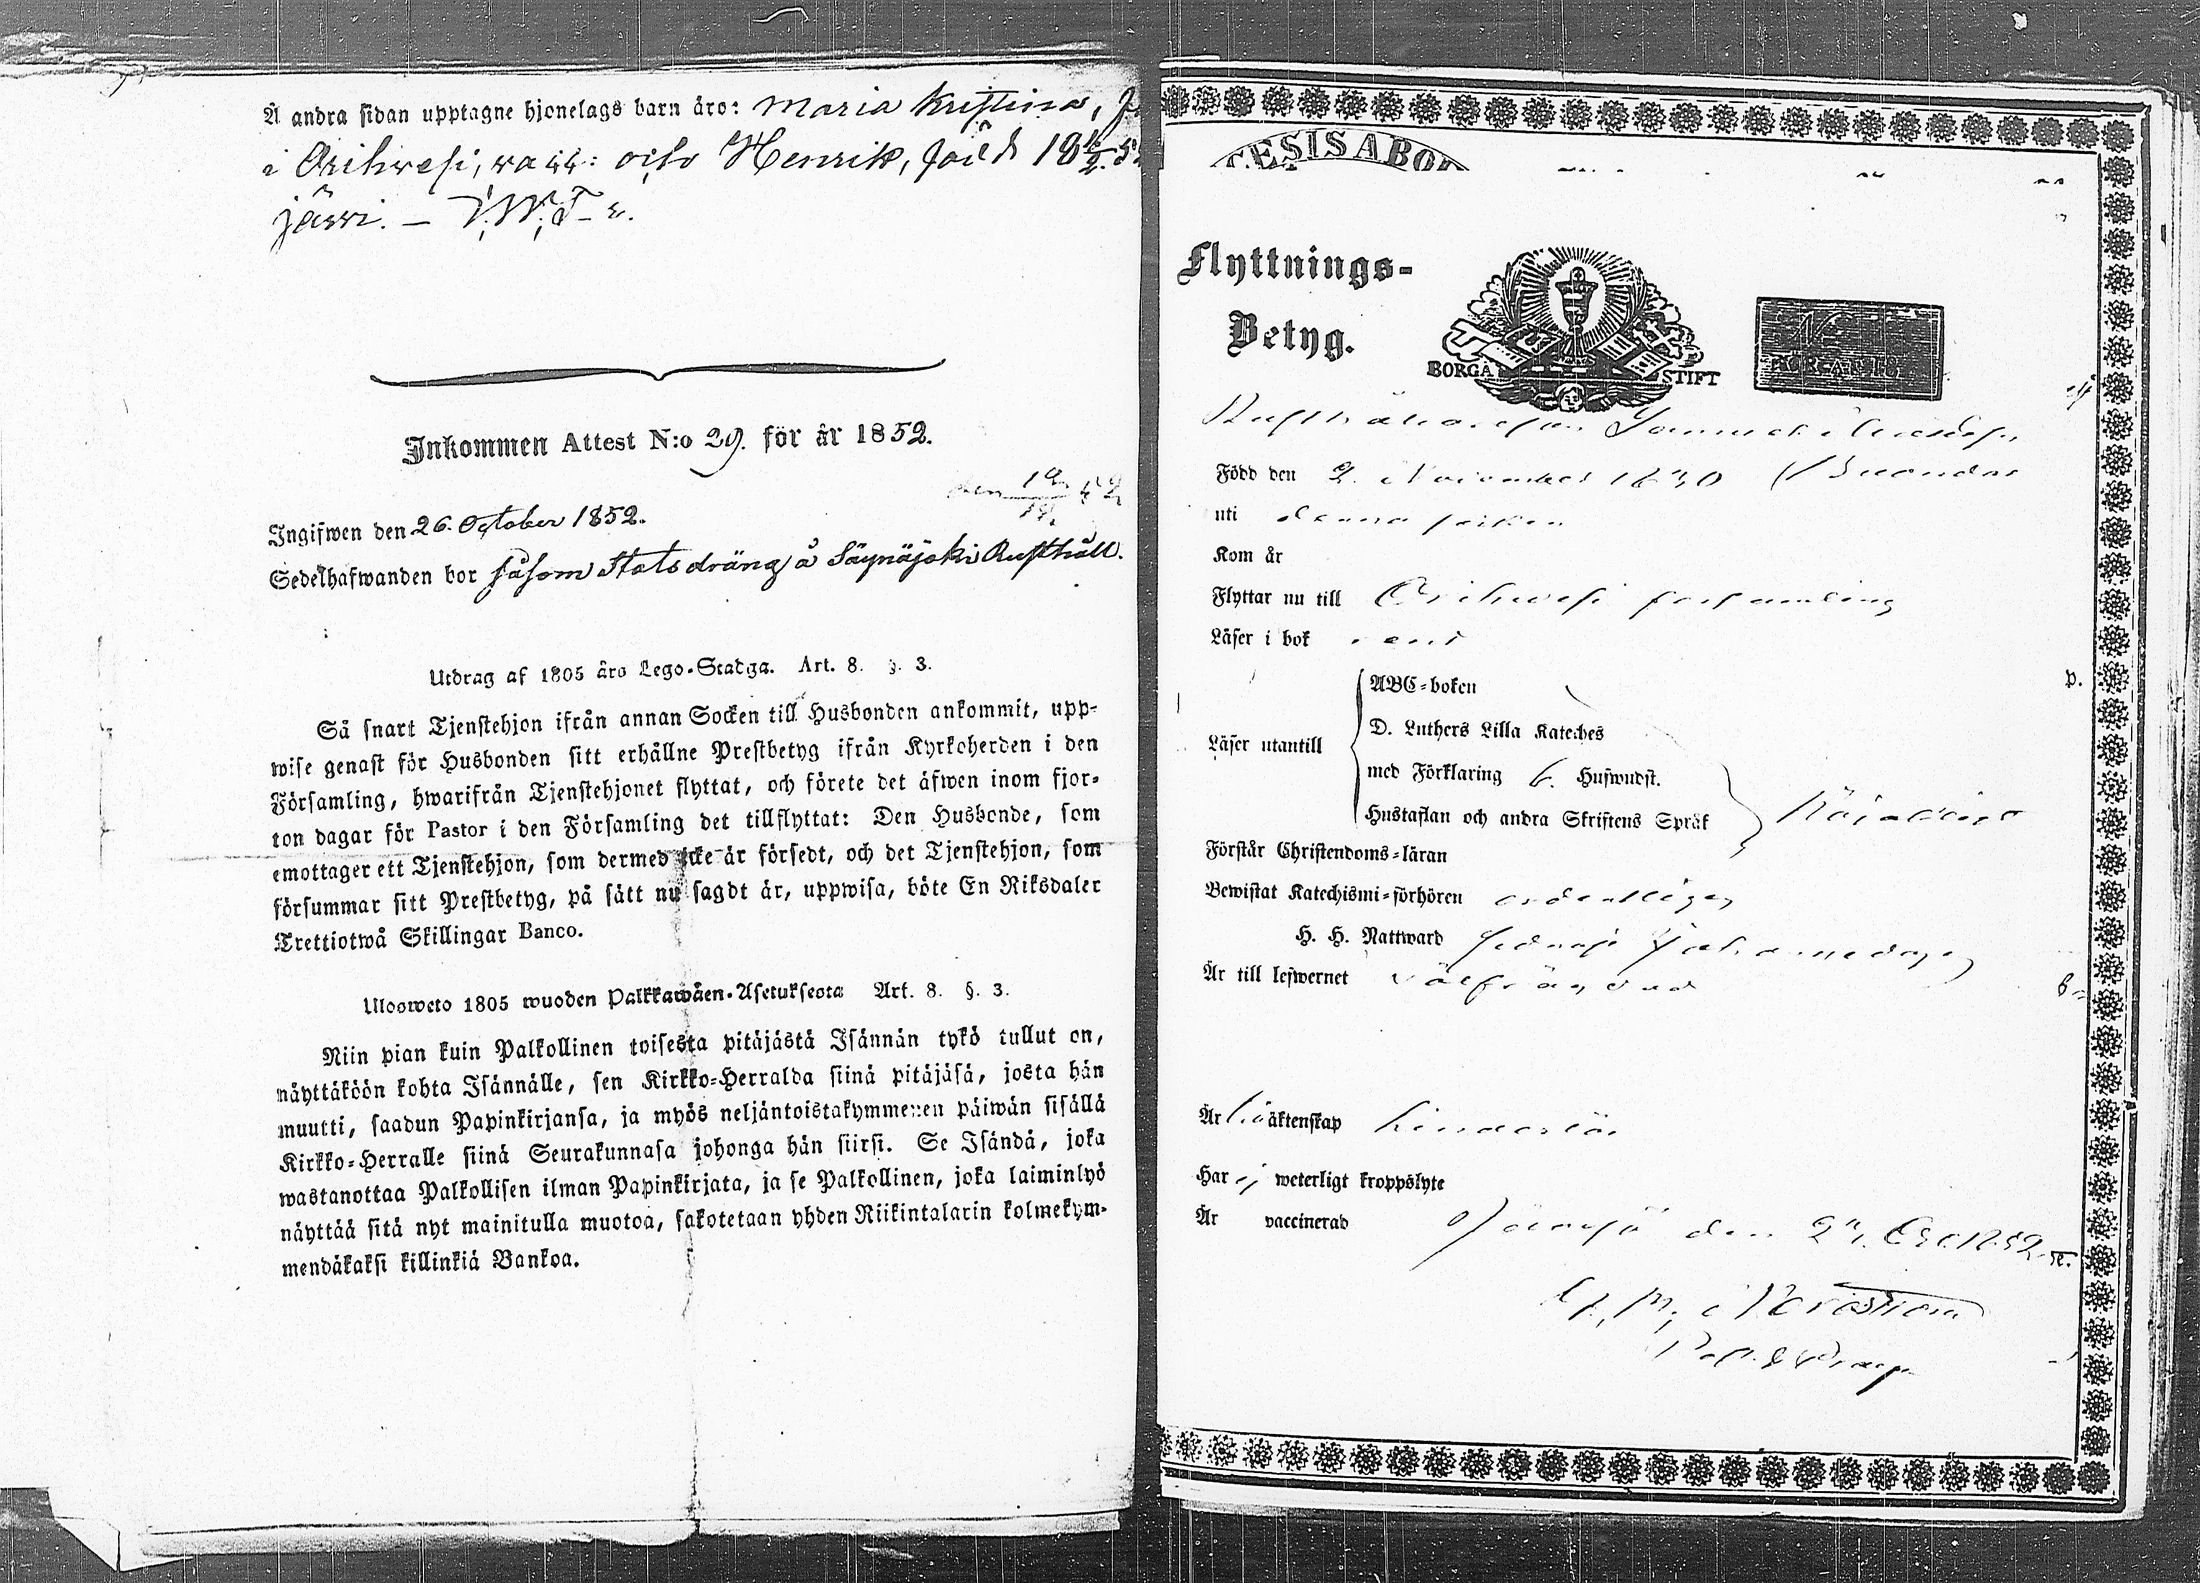 Å andra sidan upptagne hjonelags barn äro: Maria Kristina,
i Orihvesi, vacc: och Henrik, född 18
järvi. —
Inkommen Attest N:o 29. för år 1852.
den 52
Ingifwen den 26. October 1852.
Sedelhafwanden bor såsom Statsdräng å Säynäjoki Rusthåll.
Utdrag af 1805 års Lego-Stadga. Art. 8. §. 3.
Så snart Tjenstehjon ifrån annan Socken till Husbonden ankommit, upp-
wise genast för Husbonden sitt erhållne Prestbetyg ifrån Kyrkoherden i den
Församling, hwarifrån Tjenstehjonet flyttat, och förete det äfwen inom fjor-
ton dagar för Pastor i den Församling det tillflyttat: Den Husbonde, som
emottager ett Tjenstehjon, som dermed icke är försedt, och det Tjenstehjon, som
försummar sitt Prestbetyg, på sätt nu sagdt är, uppwisa, böte En Riksdaler
Trettiotwå Skillingar Banco.
Ulosweto 1805 wuoden Palkkawäen-Asetuksesta Art. 8. §. 3.
Niin pian kuin Palkollinen toisesta pitäjästä Isännän tykö tullut on,
näyttäköön kohta Isännälle, sen Kirkko-Herralda siinä pitäjäsä, josta hän
muutti, saadun Papinkirjansa, ja myös neljäntoistakymmenen päiwän sisällä
Kirkko-Herralle siinä Seurakunnasa johonga hän siirsi. Se Isändä, joka
wastanottaa Palkollisen ilman Papinkirjata, ja se Palkollinen, joka laiminlyö
näyttää sitä nyt mainitulla muotoa, sakotetaan yhden Riikintalarin kolmekym-
mendäkaksi killinkiä Bankoa.
Flyttnings-
Betyg.
BORGÅ STIFT
Född den 2. November 1830
uti denna socken
Kom år
Flyttar nu till Orihvesi församling
Läser i bok rent
ABC-boken
D. Luthers Lilla Kateches
Läser utantill
med Förklaring 6. Hufwudst.
Hustaflan och andra Skriftens Språk
Förstår Christendoms-läran
Bewistat Katechismi-förhören ordentligen
H. H. Nattward
Är till lefwernet välfrägdad
Är äktenskap hinderlös
Har ej weterligt kroppslyte
Är vaccinerad
den Oct. 1852.